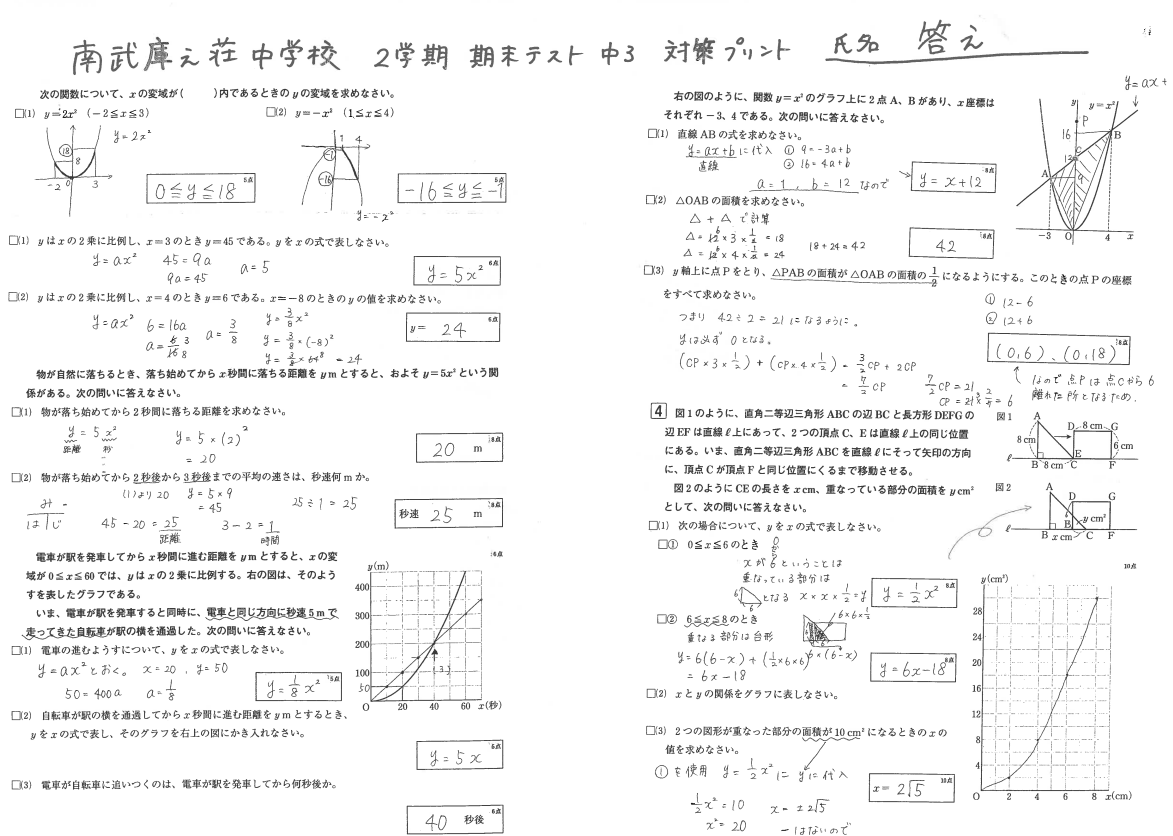 南武庫之荘中学校 2学期 期末テスト 中3 対策プリント 氏名 答え
次の関数について、xの変域が( )内であるときのyの変域を求めなさい。
□(1) y=2x² (−2≦x≦3)
y=2x²
18
8
−2 0 3
0≦y≦18 5点
□(2) y=−x² (1≦x≦4)
1 4
−1
−16
y=−x²
−16≦y≦−1 5点
□(1) yはxの2乗に比例し、x=3のときy=45である。yをxの式で表しなさい。
y=ax² 45=9a a=5
9a=45
y=5x² 6点
□(2) yはxの2乗に比例し、x=4のときy=6である。x=−8のときのyの値を求めなさい。
y=ax² 6=16a a=3/8 y=3/8x²
a=6/16 3/8 y=3/8×(−8)²
y=3/8×64 8 =24
y= 24 6点
物が自然に落ちるとき、落ち始めてからx秒間に落ちる距離をymとすると、およそy=5x²という関
係がある。次の問いに答えなさい。
□(1) 物が落ち始めてから2秒間に落ちる距離を求めなさい。
y=5x² y=5×(2)²
距離 秒 =20
20 m 8点
□(2) 物が落ち始めてから2秒後から3秒後までの平均の速さは、秒速何mか。
(1)より20 y=5×9 25÷1=25
み =45
は じ 45−20=25 3−2=1
距離 時間
秒速 25 m 8点
電車が駅を発車してからx秒間に進む距離をymとすると、xの変
域が0≦x≦60では、yはxの2乗に比例する。右の図は、そのよう
すを表したグラフである。
いま、電車が駅を発車すると同時に、電車と同じ方向に秒速5mで
走ってきた自転車が駅の横を通過した。次の問いに答えなさい。
□(1) 電車の進むようすについて、yをxの式で表しなさい。
y=ax²とおく。 x=20, y=50
50=400a a=1/8
y=1/8x² 5点
□(2) 自転車が駅の横を通過してからx秒間に進む距離をymとするとき、
yをxの式で表し、そのグラフを右上の図にかき入れなさい。
y=5x 5点
□(3) 電車が自転車に追いつくのは、電車が駅を発車してから何秒後か。
40 秒後 6点
6点
y(m)
400
300
200
100
50
(3)
O 20 40 60 x(秒)
右の図のように、関数y=x²のグラフ上に2点A、Bがあり、x座標は
それぞれ−3、4である。次の問いに答えなさい。
□(1) 直線ABの式を求めなさい。
y=ax+bに代入 ① 9=−3a+b
直線 ② 16=4a+b
a=1, b=12 なので
y=x+12 8点
□(2) △OABの面積を求めなさい。
△+△で計算
△=12 6×3×1/2=18
△=12 6×4×1/2=24
18+24=42
42 8点
y=ax+
y y=x²
P
16 B
C
12
A 9
−3 O 4 x
□(3) y軸上に点Pをとり、△PABの面積が△OABの面積の1/2になるようにする。このときの点Pの座標
をすべて求めなさい。
つまり 42÷2=21になるように。
① 12−6
② 12+6
(CP×3×1/2)+(CP×4×1/2)=3/2CP+2CP
=7/2CP 7/2CP=21
CP=21 3×2/7=6
(0,6)、(0,18) 8点
なので 点Pは点Cから6
離れた所となるため.
4 図1のように、直角二等辺三角形ABCの辺BCと長方形DEFGの
辺EFは直線ℓ上にあって、2つの頂点C、Eは直線ℓ上の同じ位置
にある。いま、直角二等辺三角形ABCを直線ℓにそって矢印の方向
に、頂点Cが頂点Fと同じ位置にくるまで移動させる。
図2のようにCEの長さをxcm、重なっている部分の面積をycm²
として、次の問いに答えなさい。
図1
A D 8cm G
8cm 6cm
ℓ B 8cm C E F
図2
A D G
ycm²
ℓ B E xcm C F
□(1) 次の場合について、yをxの式で表しなさい。
□① 0≦x≦6のとき 0から
xが6ということは
重なっている部分は
となる x×x×1/2=y
y=1/2x² 8点
□② 6≦x≦8のとき 6×6×1/2
重なる部分は台形
6×(6−x)
y=6(6−x)+(1/2×6×6)
=6x−18
y=6x−18 8点
□(2) xとyの関係をグラフに表しなさい。
□(3) 2つの図形が重なった部分の面積が10cm²になるときのxの
値を求めなさい。
①を使用 y=1/2x²に yに代入
1/2x²=10 x=±2√5
x²=20 −はないので
x= 2√5 10点
10点
y(cm²)
28
24
20
16
12
8
4
O 2 4 6 8 x(cm)